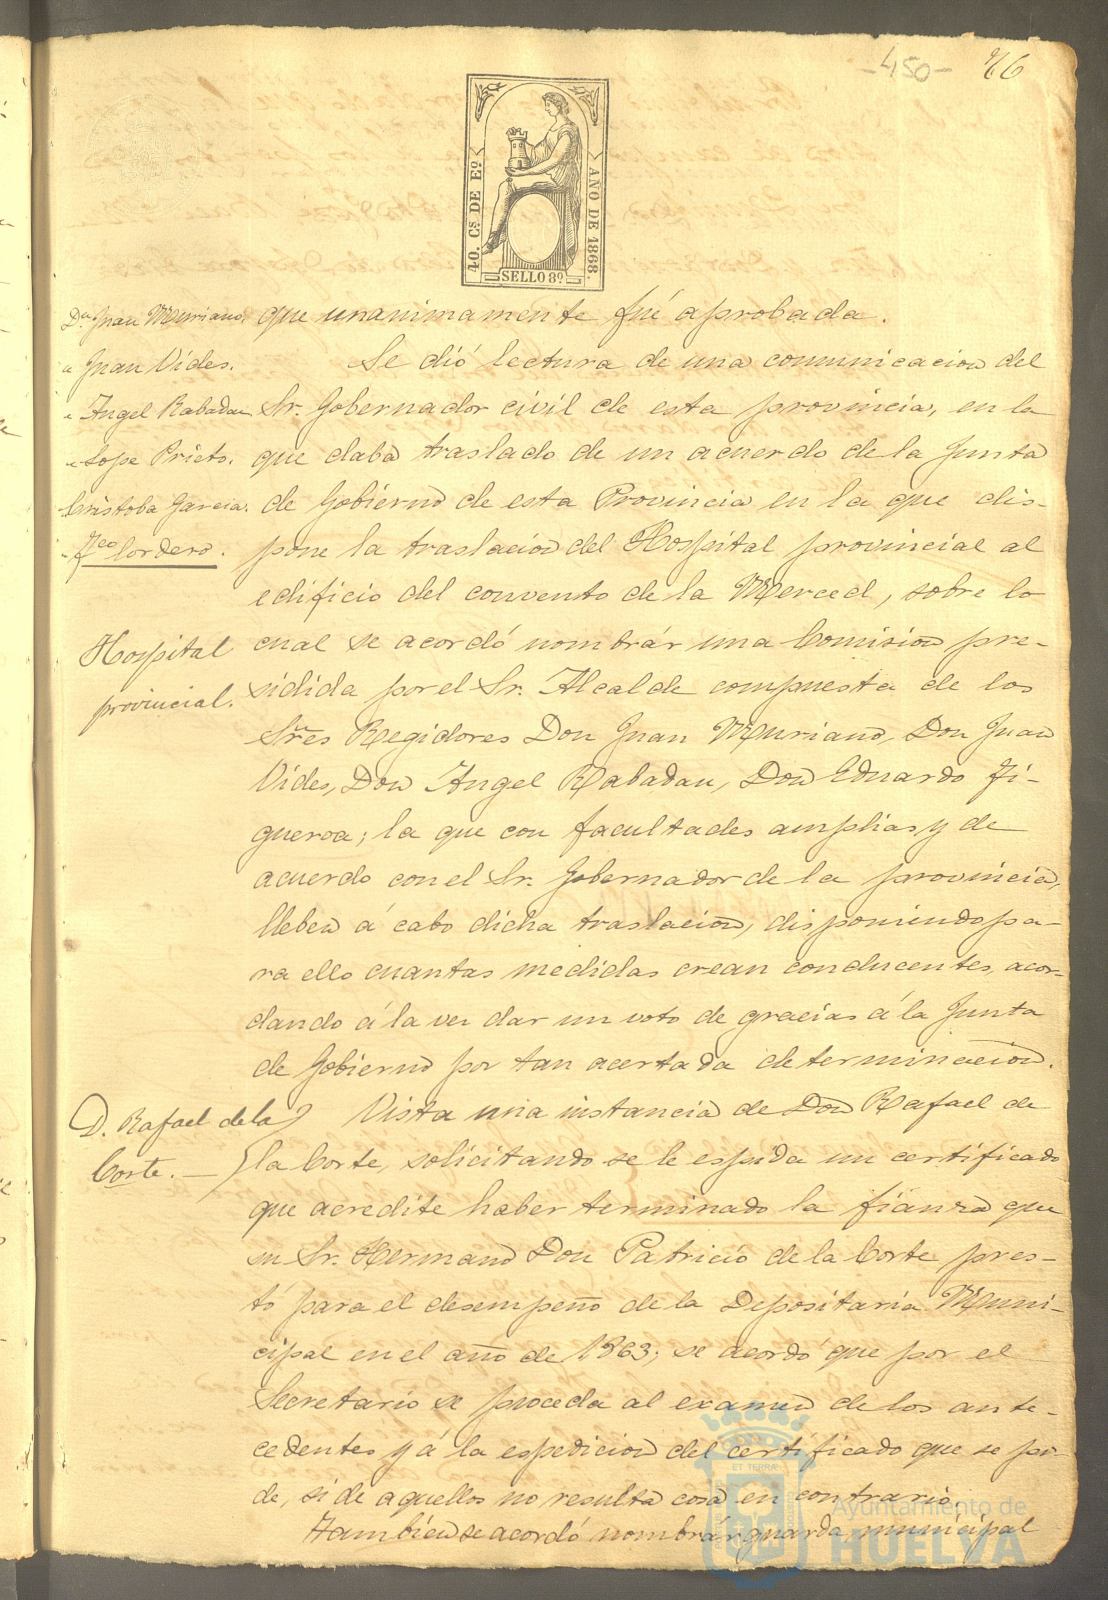 -450- 76
40. Cs. DE Eo.
AÑO DE 1868.
SELLO 8º
Dn. Juan Muriano.
" Juan Vides.
" Angel Rabadan
" Lope Prieto.
Cristoba Garcia.
" Fco Cordero.
que unanimamente fué aprobada.
Se dió lectura de una comunicacion del
Sr. Gobernador civil de esta provincia, en la
que daba traslado de un acuerdo de la Junta
de Gobierno de esta Provincia en la que dis-
pone la traslacion del Hospital provincial al
edificio del convento de la Merced, sobre lo
Hospital
provincial.
cual se acordó nombrár una Comision pre-
sidida por el Sr. Alcalde compuesta de los
Sres Regidores Don Juan Muriano, Don Juan
Vides, Don Angel Rabadan, Don Eduardo Fi-
gueroa; la que con facultades amplias y de
acuerdo con el Sr. Gobernador de la provincia,
lleben á cabo dicha traslacion, disponiendo pa-
ra ello cuantas medidas crean conducentes, acor-
dando á la ver dar un voto de gracias á la Junta
de Gobierno por tan acertada determinacion.
D. Rafael de la
Corte. —
Vista una instancia de Don Rafael de
la Corte, solicitando se le espida un certificado
que acredite haber terminado la fianza que
su Sr. Hermano Don Patricio de la Corte pres-
tó para el desempeño de la Depositaria Muni-
cipal en el año de 1863; se acordó que por el
Secretario se proceda al examen de los ante-
cedentes y á la espedicion del certificado que se pi-
de, si de aquellos no resulta cosa en contrario.
Tambien se acordó nombrár guarda municipal
Ayuntamiento de
HUELVA